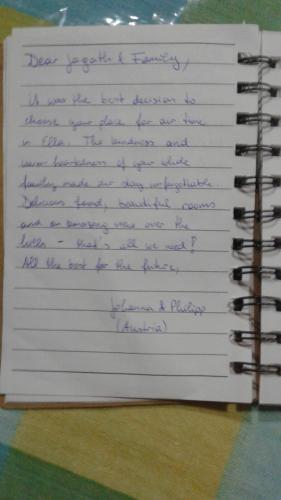 Dear Jagath & Family,
It was the best decision to
choose your place for our time
in Ella. The kindness and
warm heartedness of your whole
family made our stay unforgettable.
Delicious food, beautiful rooms
and an amazing view over the
hills - that's all we need!
All the best for the future,
Johanna & Philipp
(Austria)